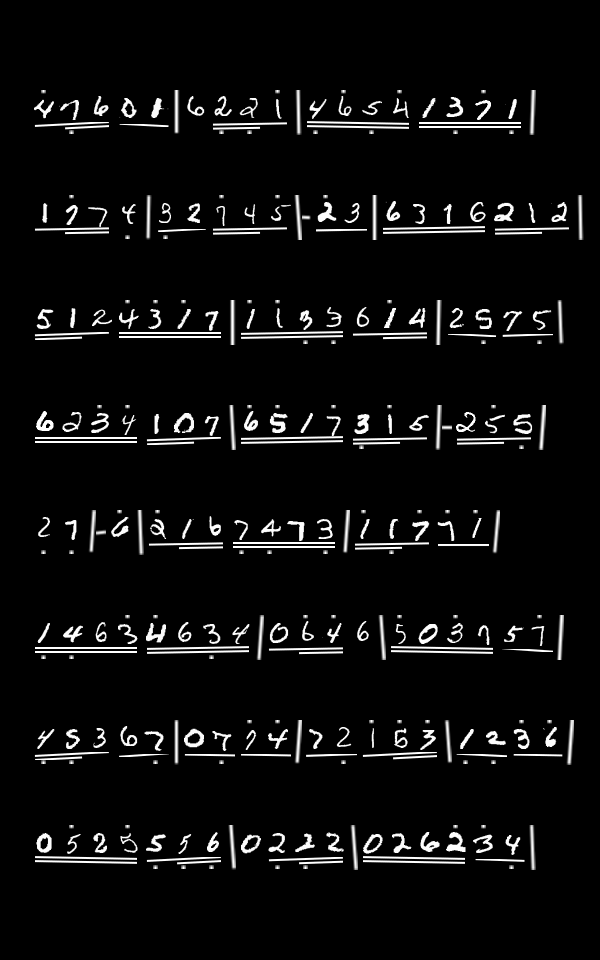 47601|6221|46541371
1774|32745|-23|6316212
5124317|1133614|2575
6234107|6517315|-255
27|-6|2167473|11771
14634634|0646|503757
45367|0774|72153|1236
0525556|0222|026234